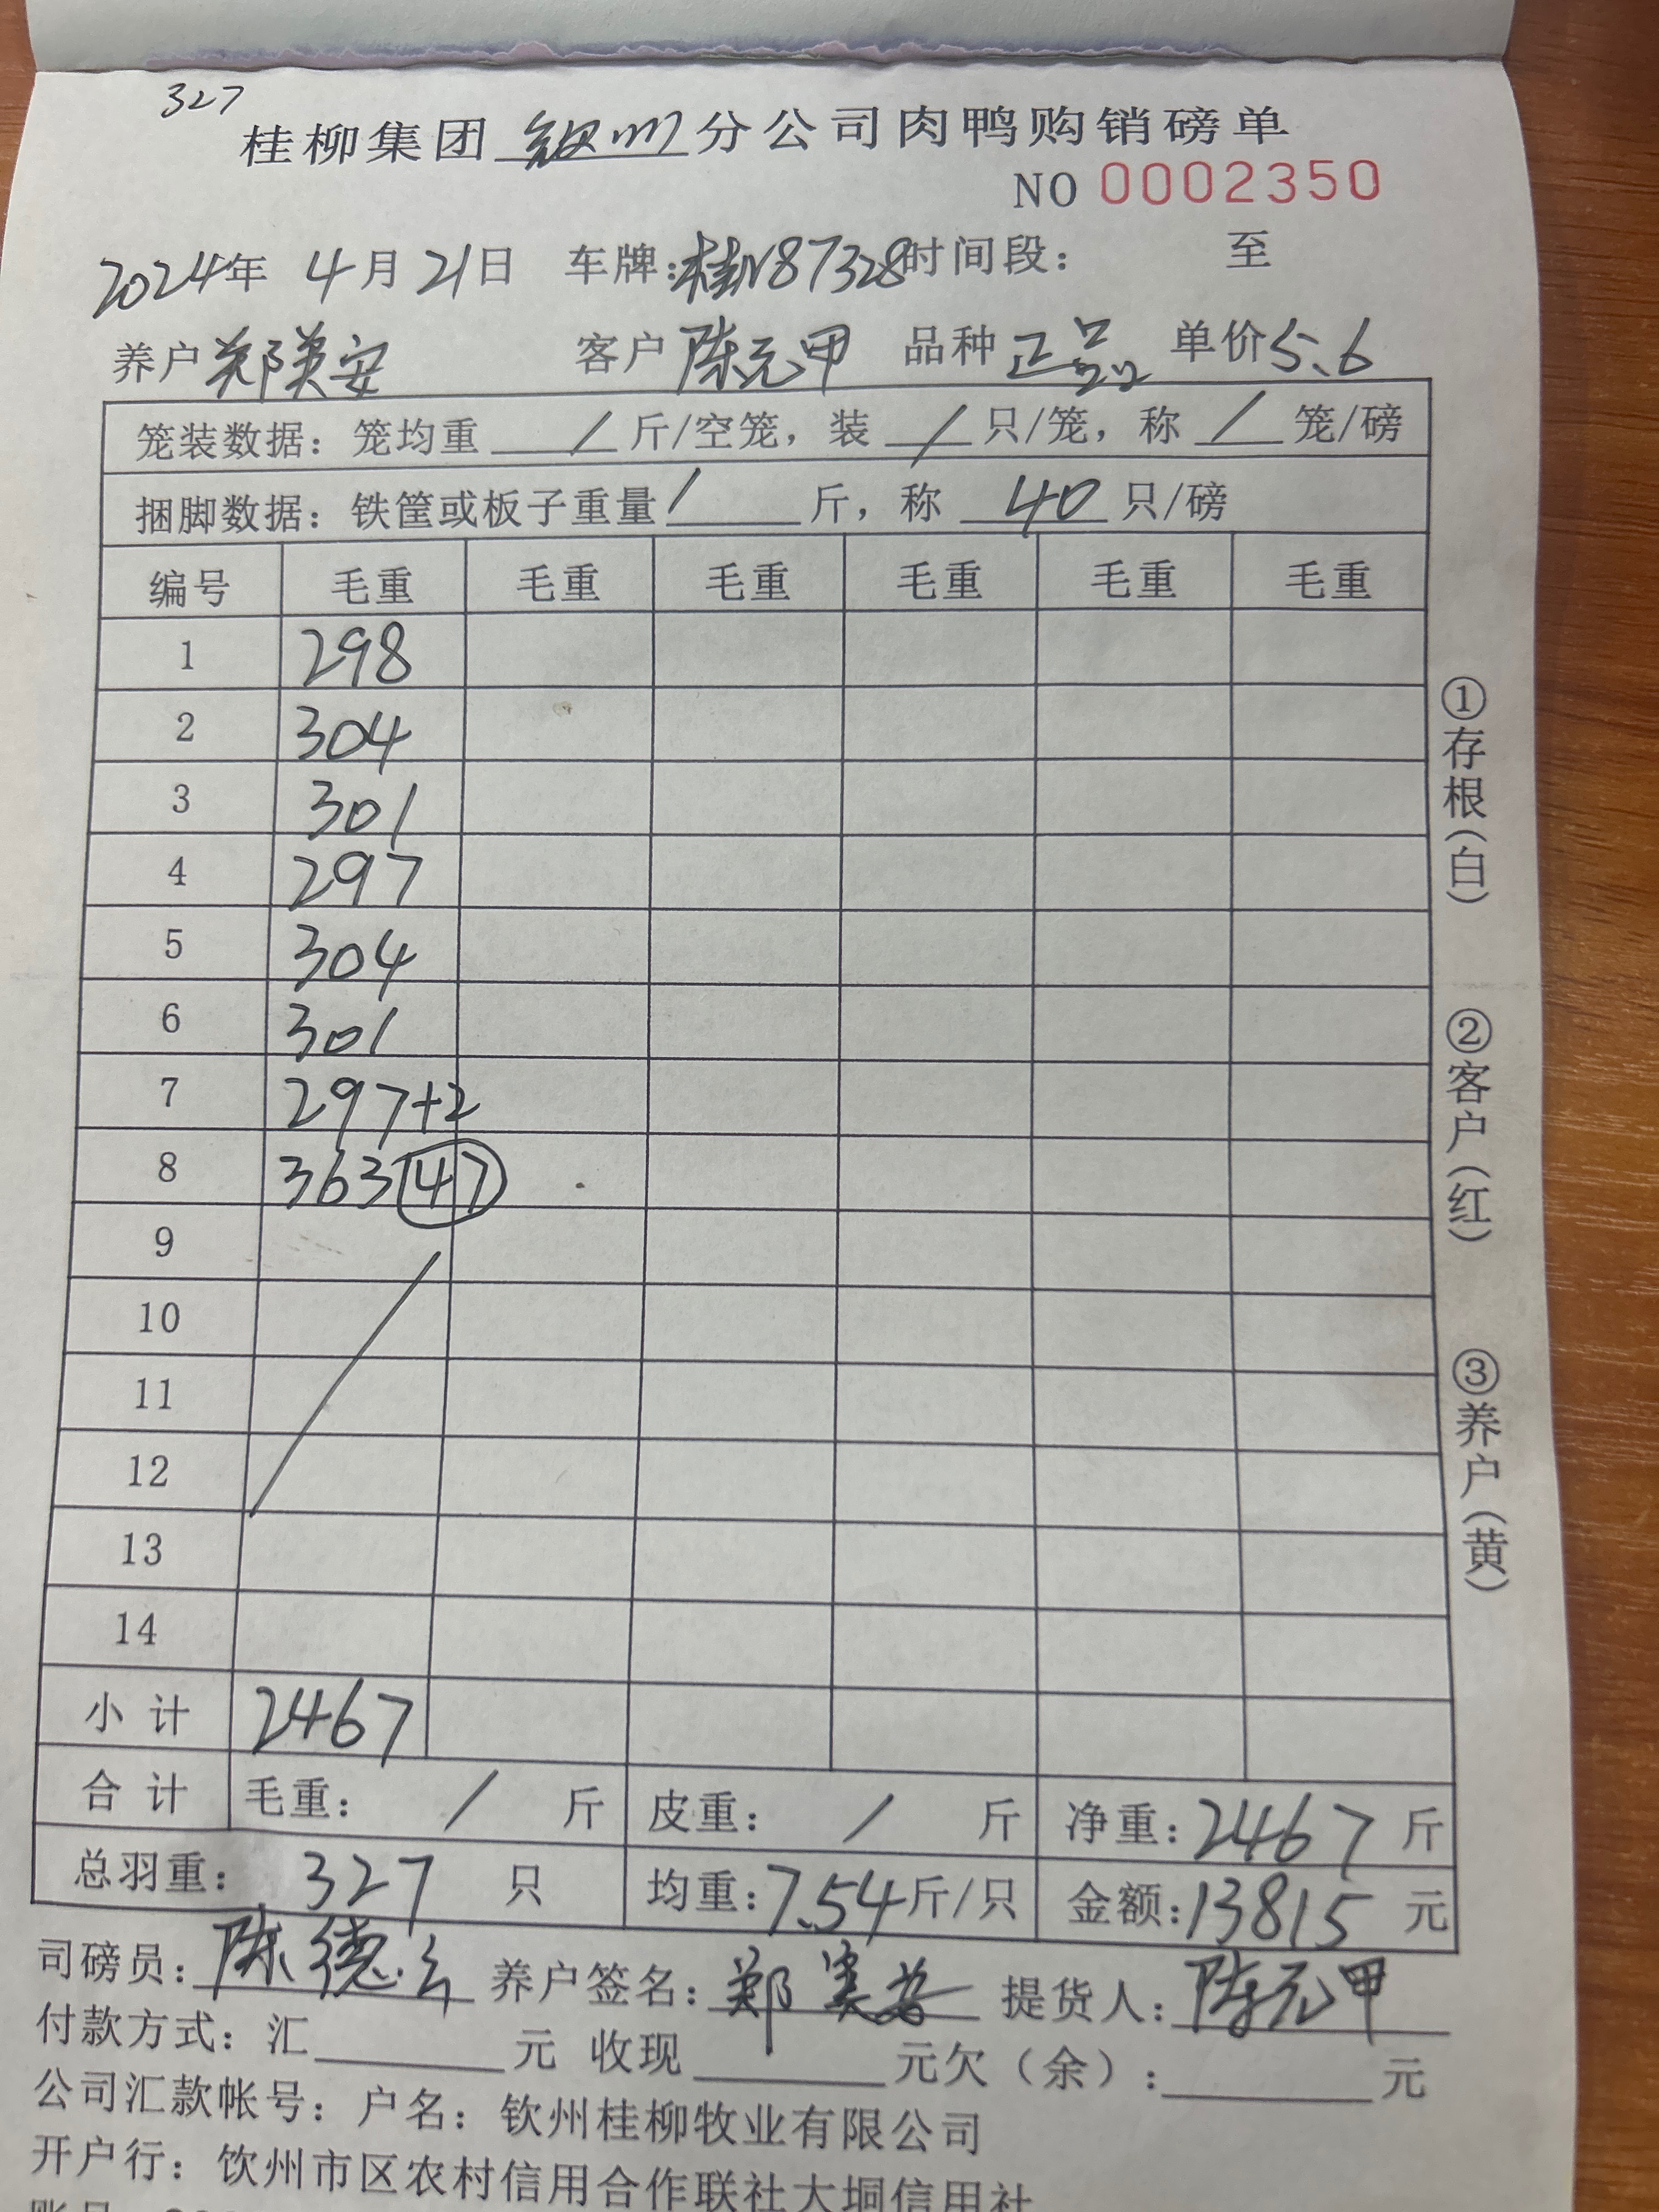 327
桂柳集团 钦州 分公司肉鸭购销磅单
NO 0002350
2024年 4月21日 车牌:桂N87328时间段: 至
养户 郑美安 客户 陈元甲 品种 正品 单价5.6
笼装数据: 笼均重 / 斤/空笼, 装 / 只/笼, 称 / 笼/磅
捆脚数据: 铁筐或板子重量 / 斤, 称 40 只/磅
编号 毛重 毛重 毛重 毛重 毛重 毛重
1 298
2 304
3 301
4 297
5 304
6 301
7 297+2
8 363 47
9
10
11
12
13
14
小计 2467
合计 毛重: / 斤 皮重: / 斤 净重:2467斤
总羽重: 327 只 均重:7.54斤/只 金额:13815 元
司磅员: 陈德 养户签名: 郑美安 提货人: 陈元甲
付款方式: 汇 元 收现 元欠(余): 元
公司汇款帐号: 户名: 钦州桂柳牧业有限公司
开户行: 钦州市区农村信用合作联社大垌信用社
①存根(白) ②客户(红) ③养户(黄)